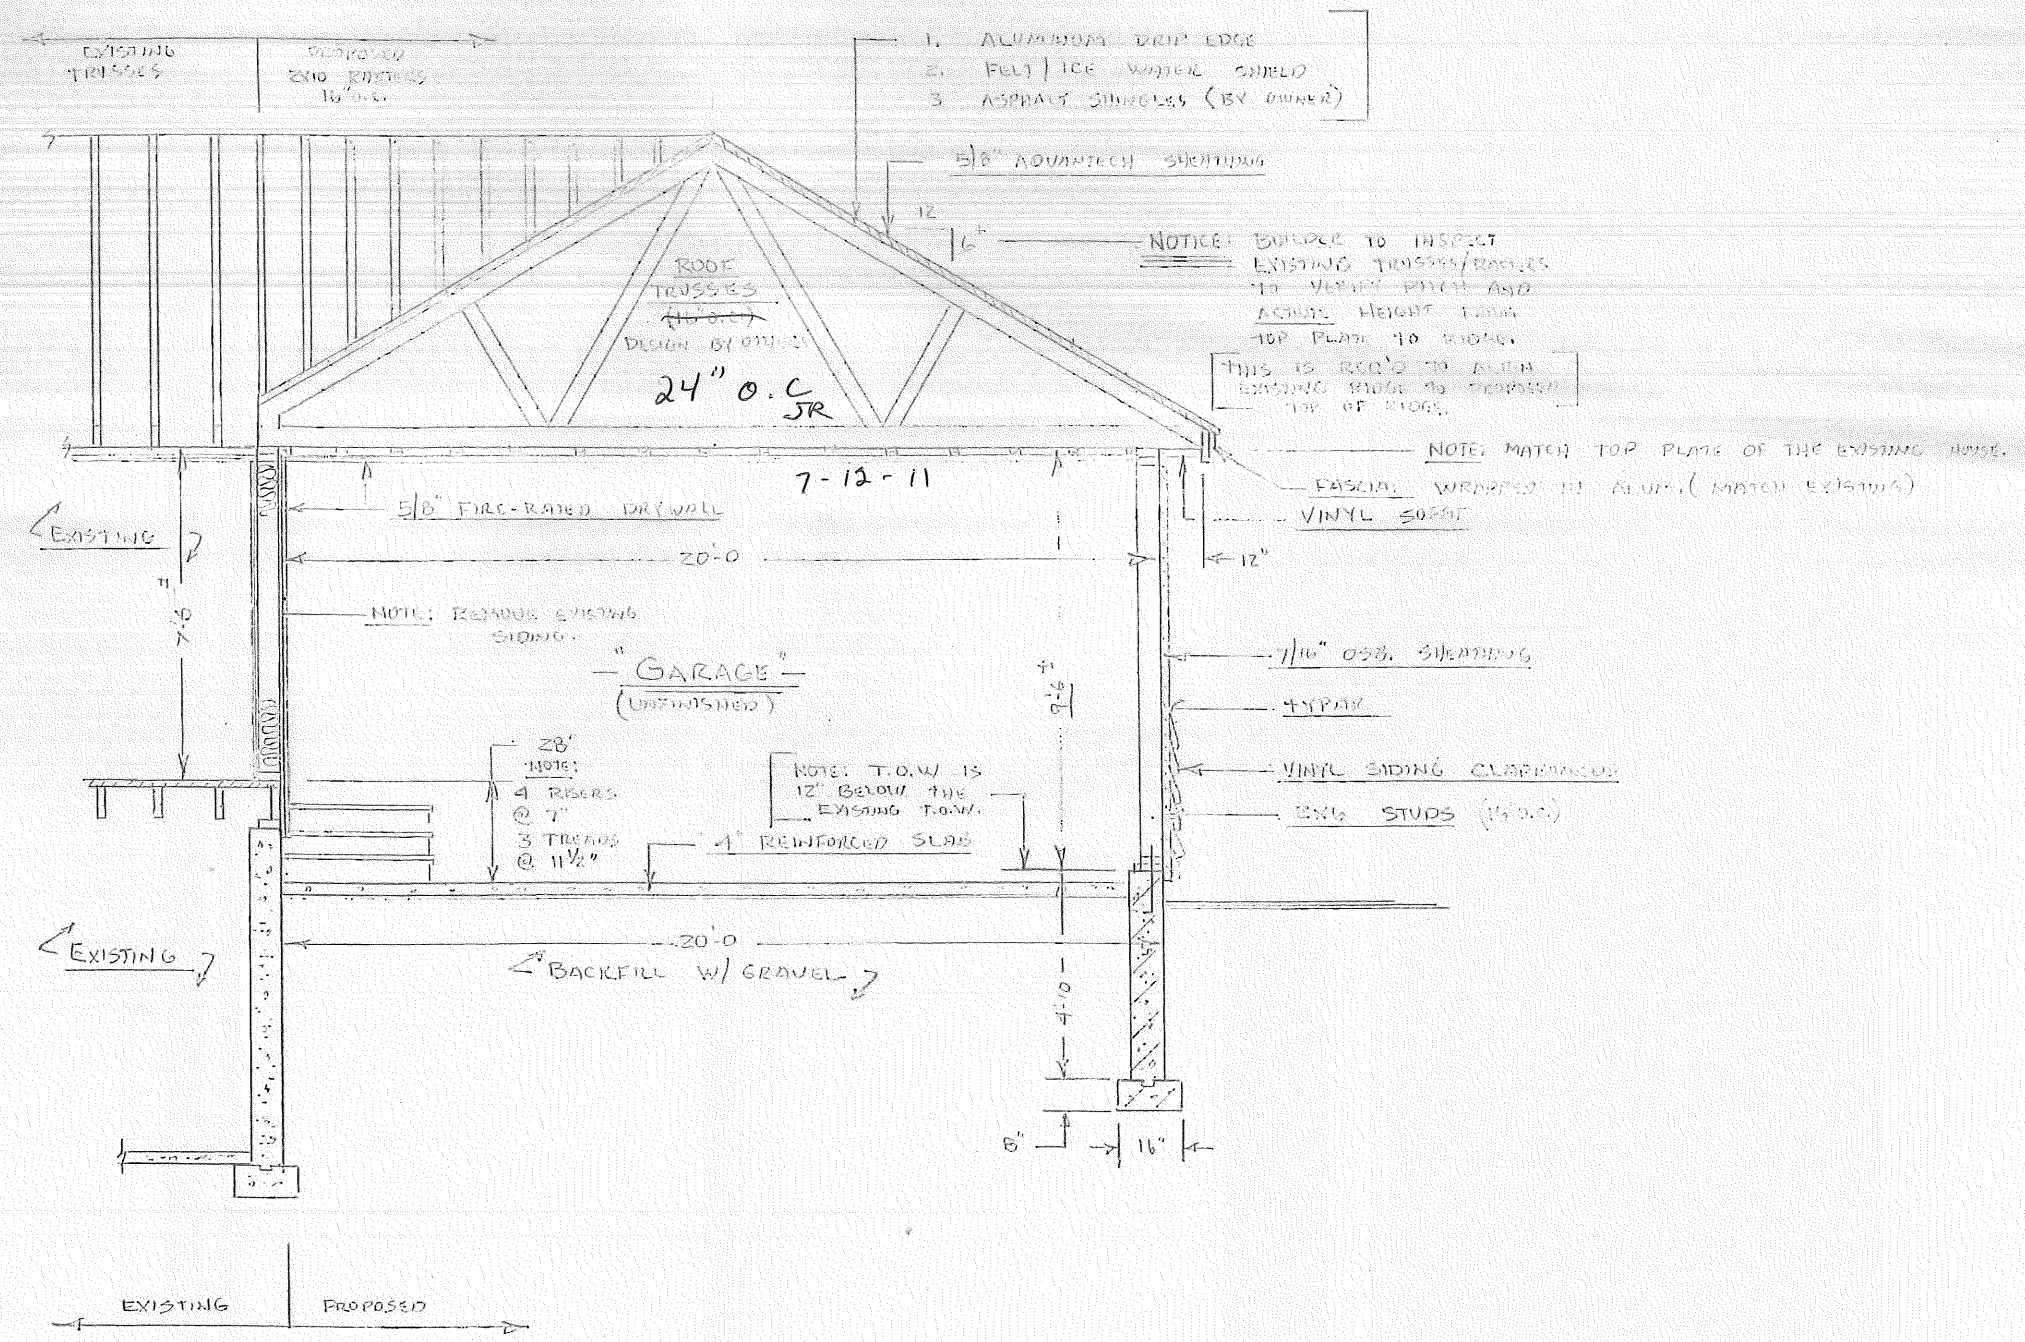 EXISTING
TRUSSES
PROPOSED
2X10 RAFTERS
16" O.C.
1. ALUMINUM DRIP EDGE
2. FELT / ICE WATER SHIELD
3 ASPHALT SHINGLES (BY OWNER)
5/8" ADVANTECH SHEATHING
12
6 ±
NOTICE: BUILDER TO INSPECT
EXISTING TRUSSES/RAFTERS
TO VERIFY PITCH AND
ACTUAL HEIGHT FROM
TOP PLATE TO RIDGE.
THIS IS REQ'D TO ALIGN
EXISTING RIDGE TO PROPOSED
TOP OF RIDGE.
ROOF
TRUSSES
(16" O.C.)
DESIGN BY OTHERS
24" O.C
JR
7-12-11
NOTE: MATCH TOP PLATE OF THE EXISTING HOUSE.
FASCIA: WRAPPED IN ALUM. (MATCH EXISTING)
VINYL SOFFIT
12"
5/8" FIRE-RATED DRYWALL
EXISTING
20'-0
7'-6" ±
NOTE: REMOVE EXISTING
SIDING.
"GARAGE"
(UNFINISHED)
9'-6" ±
7/16" OSB. SHEATHING
TYPAR
VINYL SIDING CLAPBOARDS
2X6 STUDS (16" O.C.)
28"
NOTE:
4 RISERS
@ 7"
3 TREADS
@ 11 1/2"
NOTE: T.O.W IS
12" BELOW THE
EXISTING T.O.W.
4" REINFORCED SLAB
EXISTING
20'-0
BACKFILL W/ GRAVEL
4'-10
8"
16"
EXISTING
PROPOSED